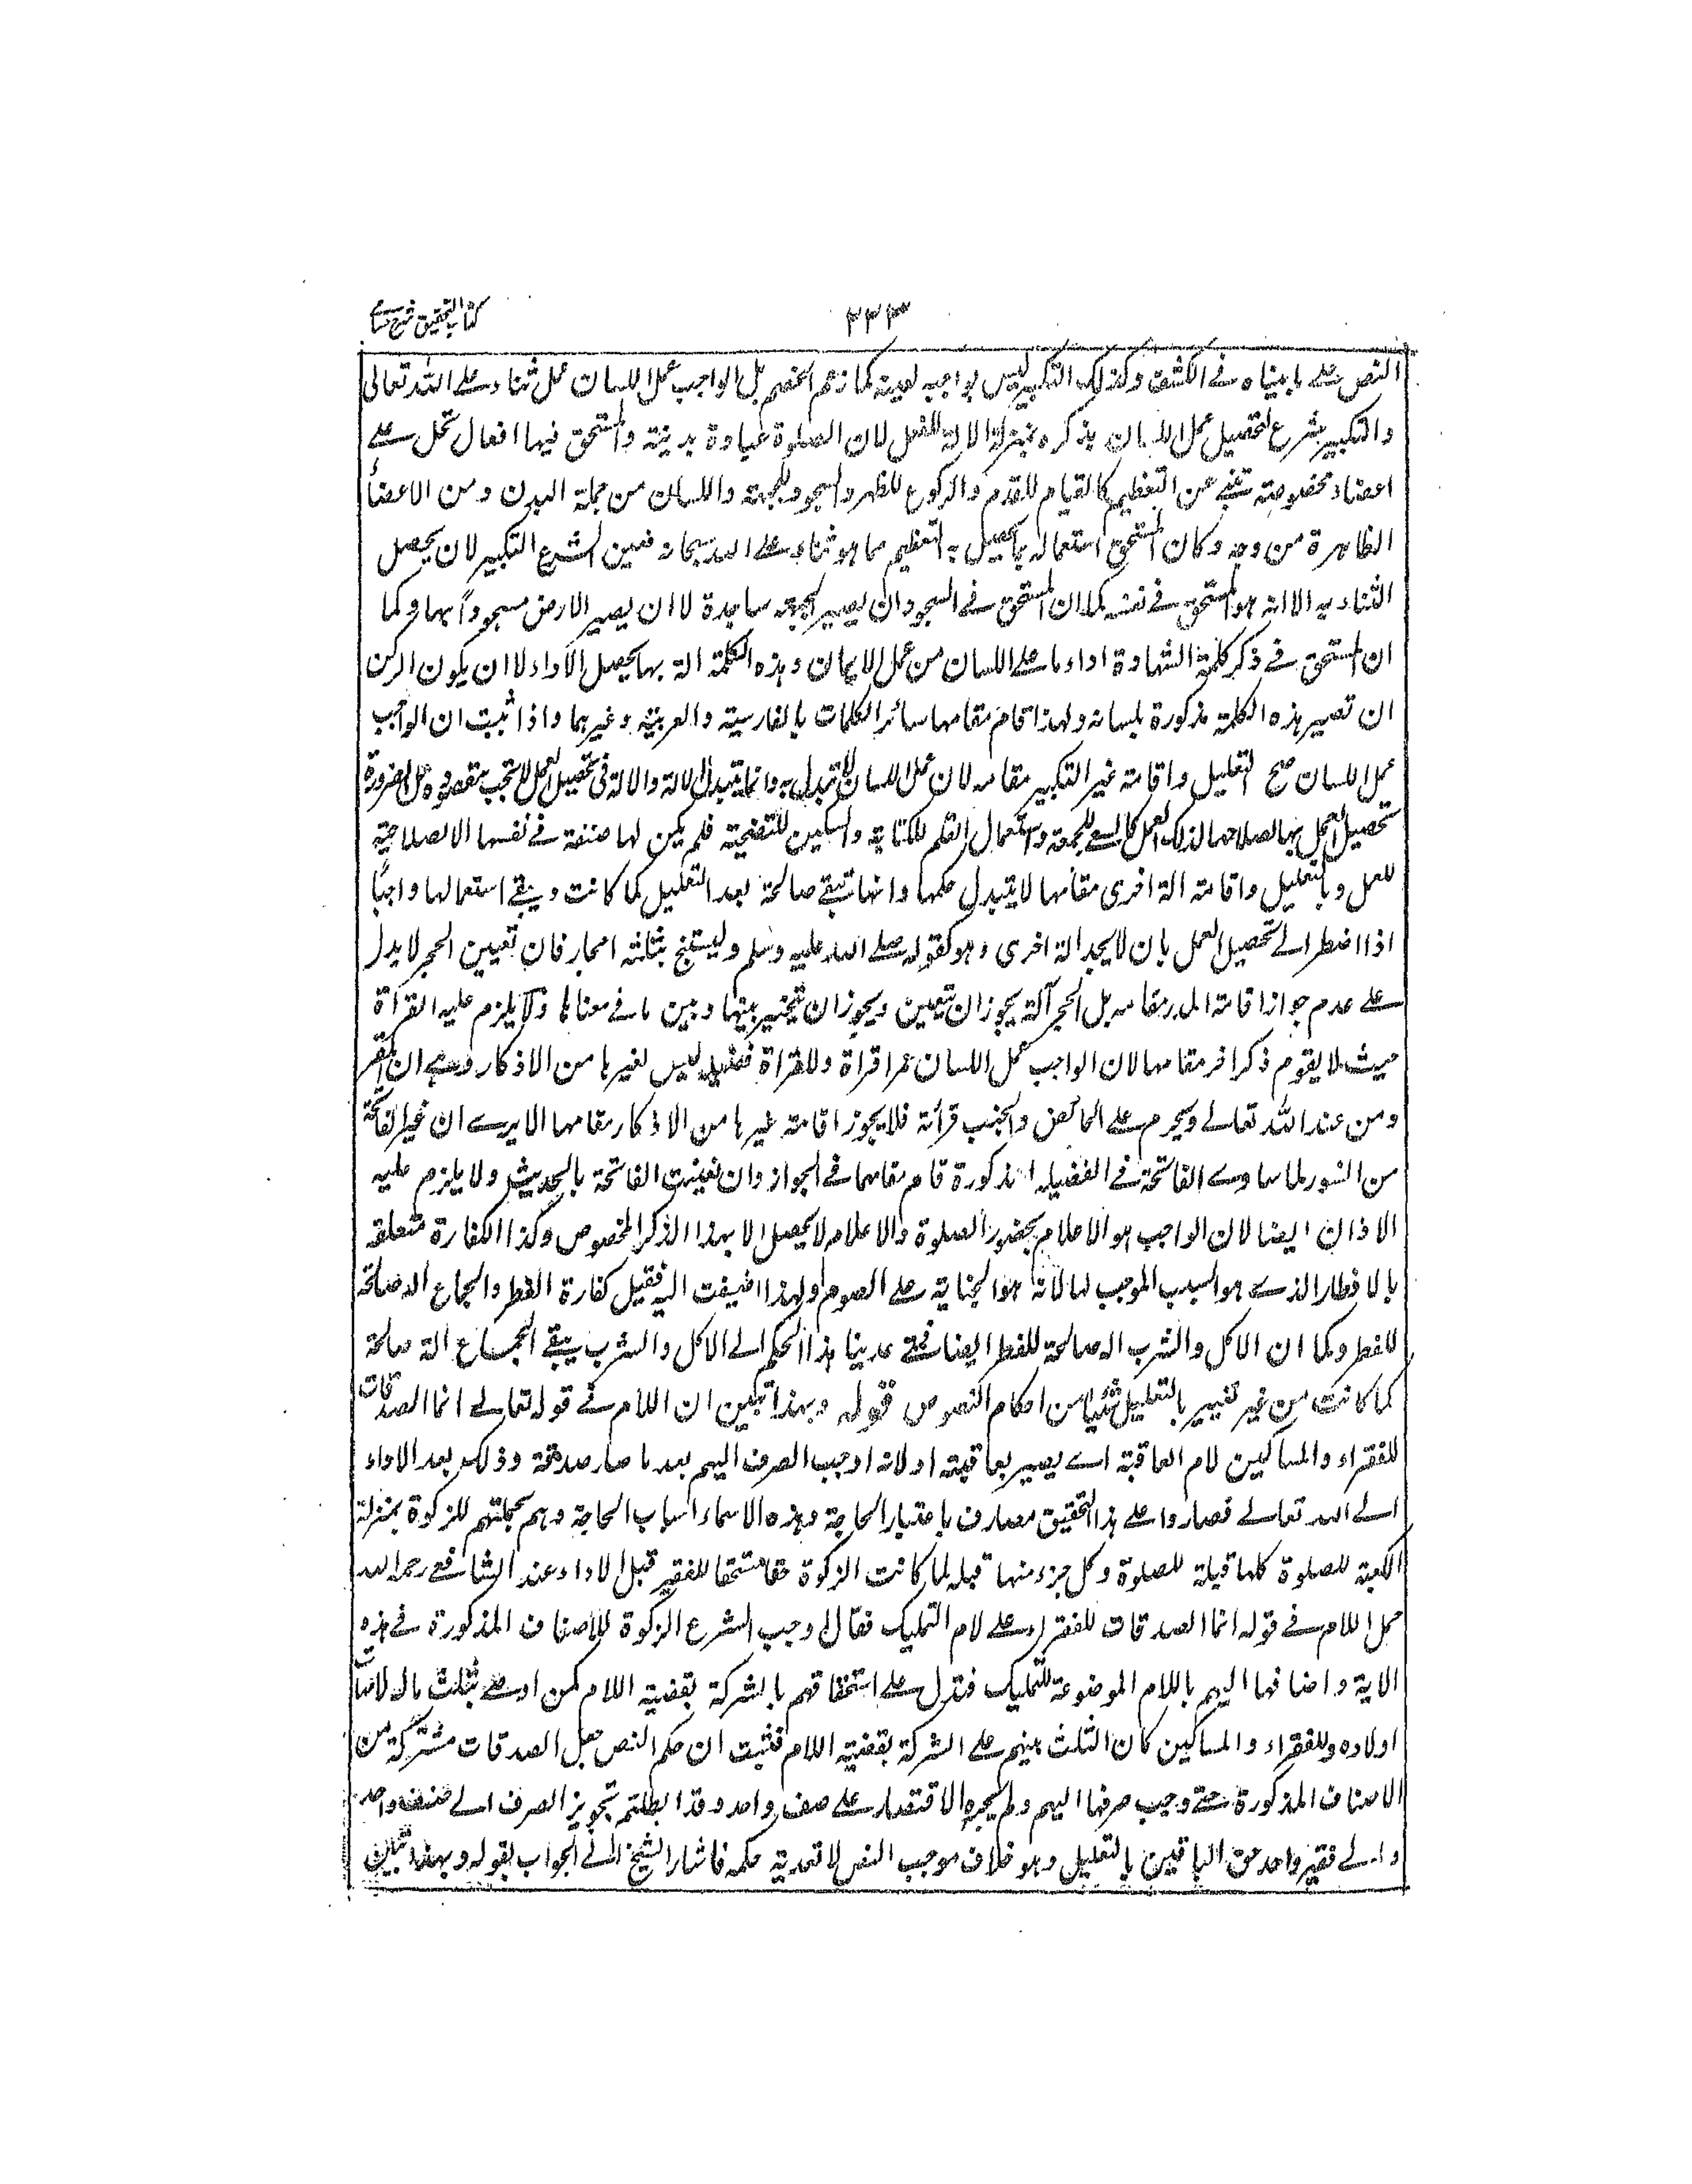 كتاب التحقيق شرح حسامي
٢٣٣
النص على ما بيناه في الكشف وكذلك التكبير ليس بواجب لعينه كما زعم الخصم بل الواجب عمل اللسان عمل ثناء على الله تعالى
والتكبير شرع لتحصيل عمل اللسان بذكره بمنزلة الالة للفعل لان الصلوة عبادة بدنية والمستحق فيها افعال تحل على
اعضاء مخصوصة تنبئ عن التعظيم كالقيام للقدم والركوع للظهر والسجود للجبهة واللسان من جملة البدن ومن الاعضاء
الظاهرة من وجه وكان المستحق استعماله بما يحصل به التعظيم مما هو ثناء على الله سبحانه فعين الشرع التكبير لان يحصل
الثناء به الا انه هو المستحق في نفسه كما ان المستحق في السجود ان يصير الجبهة ساجدة لا ان يصير الارض مسجوداً بها وكما
ان المستحق في ذكر كلمة الشهادة اداء ما على اللسان من عمل الايمان وهذه الكلمة الة بها يحصل الاداء لا ان يكون الركن
ان تصير هذه الكلمة مذكورة بلسانه ولهذا قام مقامها سائر الكلمات بالفارسية والعربية وغيرهما واذا ثبت ان الواجب
عمل اللسان صح التعليل واقامة غير التكبير مقامه لان عمل اللسان لا يتبدل به وانما يتبدل الالة والالة في تحصيل العمل لا تجب مقصودة بل لضرورة
تحصيل العمل بها لصلاحها لذلك العمل كالسعي للجمعة واستعمال القلم للكتابة والسكين للتضحية فلم يكن لها صفة في نفسها الا لصلاحية
للعمل وبالتعليل واقامة الة اخرى مقامها لا يتبدل حكمها وانها تبقى صالحة بعد التعليل كما كانت ويبقى استعمالها واجبًا
اذا اضطر الى تحصيل العمل بان لا يجد الة اخرى وهو كقوله صلى الله عليه وسلم وليستنج بثلثة احجار فان تعيين الحجر لا يدل
على عدم جواز اقامة المدر مقامه بل الحجر آلة يجوز ان يتعين ويجوز ان يتخير بينها وبين ما في معناها ولا يلزم عليه القراة
حيث لا يقوم ذكر اخر مقامها لان الواجب عمل اللسان قرأة وللقراة فضيلة ليس لغيرها من الاذكار وهي ان المقر
ومن عند الله تعالى ويحرم على الحائض والجنب قرأته فلا يجوز اقامة غيرها من الاذكار مقامها الا يرى ان غير الفاتحة
من السور لما ساوى الفاتحة في الفضيلة المذكورة قام مقامها في الجواز وان تعينت الفاتحة بالحديث ولا يلزم عليه
الاذان ايضا لان الواجب هو الاعلام بحضور الصلوة والاعلام لا يحصل الا بهذا الذكر المخصوص وكذا الكفارة متعلقة
بالافطار الذي هو السبب الموجب لها لانه هو الجناية على الصوم ولهذا اضيفت اليه فقيل كفارة الفطر والجماع الة صالحة
للفطر وكما ان الاكل والشرب الة صالحة للفطر ايضا فمتى عدينا هذا الحكم الى الاكل والشرب يبقى الجماع الة صالحة
كما كانت من غير تغيير بالتعليل شئ من احكام النصوص قوله وبهذا تبين ان اللام في قوله تعالى انما الصدقات
للفقراء والمساكين لام العاقبة اى يصير بعاقبته او لانه اوجب الصرف اليهم بعد ما صار صدقة وذلك بعد الاداء
الى الله تعالى فصاروا على هذا التحقيق مصارف باعتبار الحاجة وهذه الاسماء اسباب الحاجة وهم بجملتهم للزكوة بمنزلة
الكعبة للصلوة كلها قبلة للصلوة وكل جزء منها قبلة لما كانت الزكوة حقا مستحقا للفقير قبل الاداء عند الشافعي رحمه الله
حمل اللام في قوله انما الصدقات للفقراء على لام التمليك فقال اوجب الشرع الزكوة للاصناف المذكورة في هذه
الاية واضافها اليهم باللام الموضوعة للتمليك فتدل على استحقاقهم بالشركة بقضية اللام كمن اوصى بثلث ماله لامهات
اولاده وللفقراء والمساكين كان الثلث بينهم على الشركة بقضية اللام فثبت ان حكم النص جعل الصدقات مشتركة بين
الاصناف المذكورة حتى وجب صرفها اليهم ولم يجز الاقتصار على صنف واحد وقد ابطلتم بتجويز الصرف الى صنف واحد
والى فقير واحد حق الباقين بالتعليل وهو خلاف موجب النص لا تعدية حكمه فاشار الشيخ الى الجواب بقوله وبهذا تبين